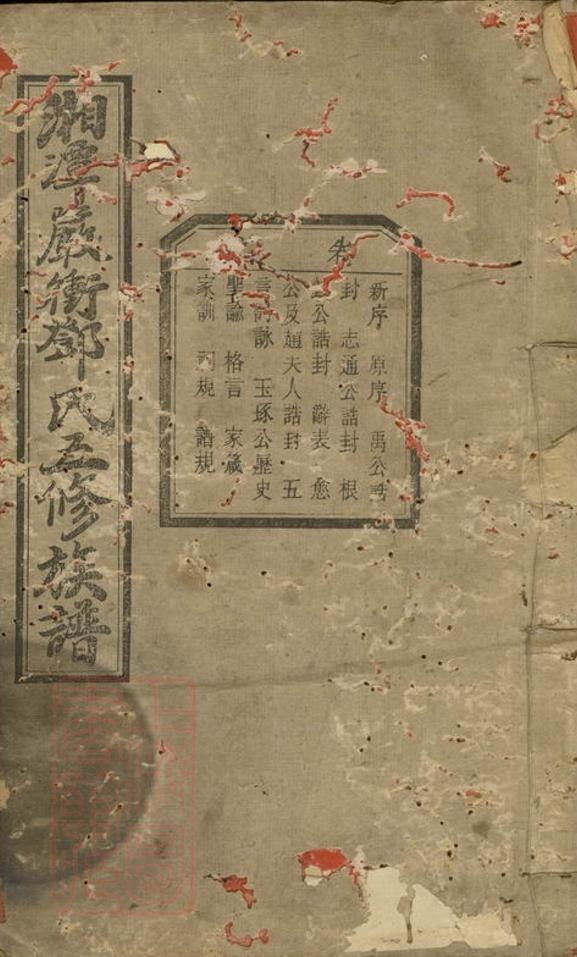 湘潭嚴衝鄧氏五修族譜
卷
新序 原序 禹公誥
封 志通公誥封 根
公誥封 辭表 愈
公及趙夫人誥封 五
言詩詠 玉琢公歷史
聖諭 格言 家箴
家訓 祠規 譜規